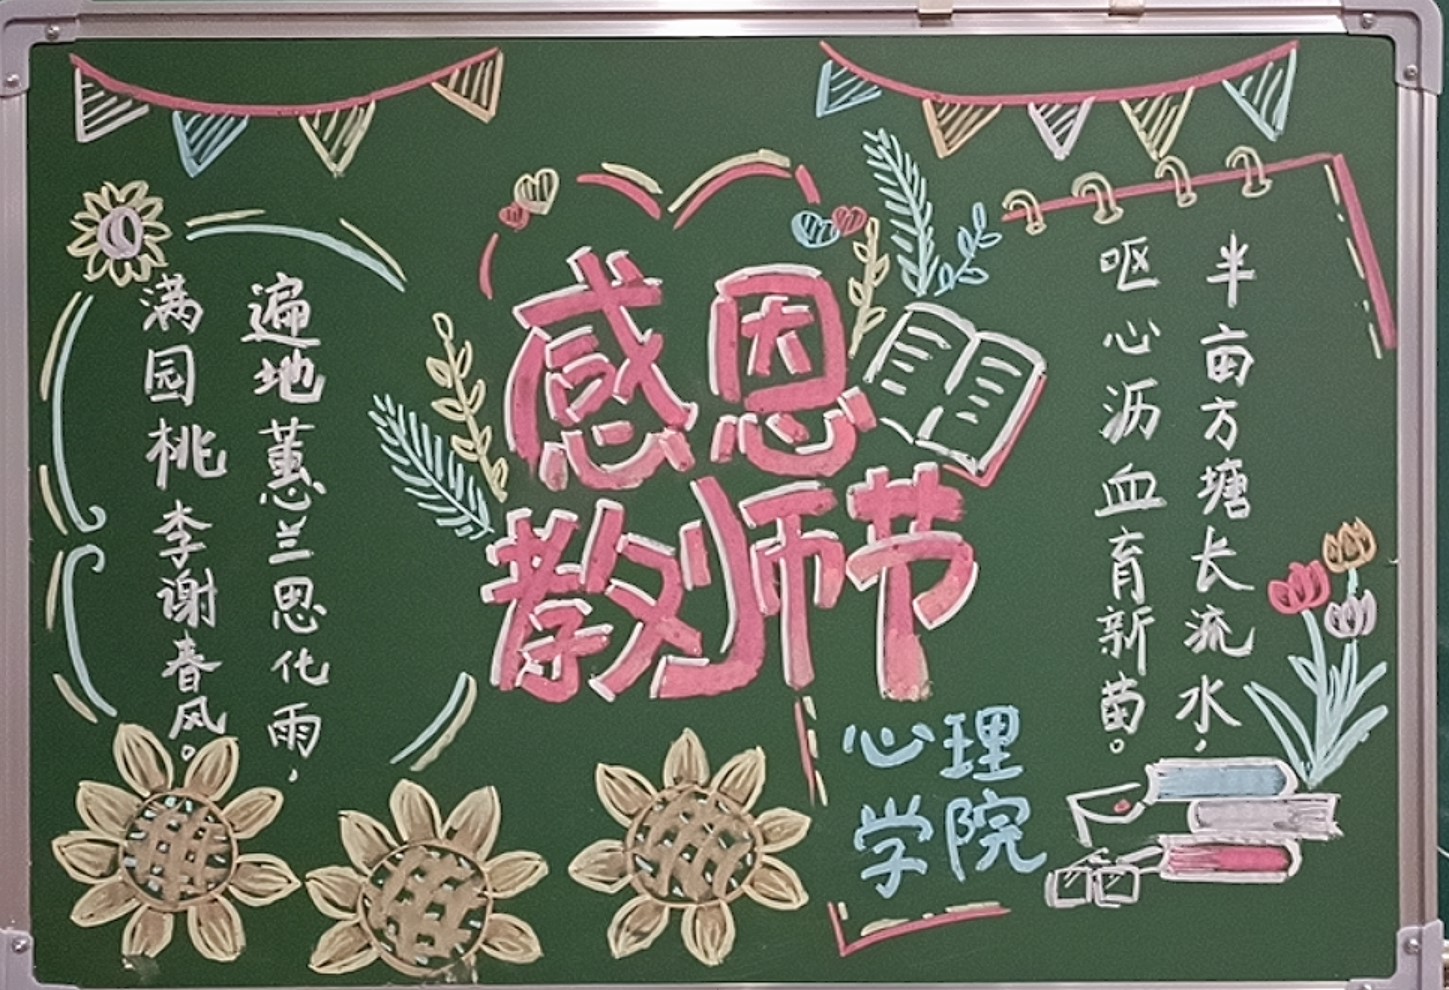 感恩
教师节
半亩方塘长流水，
呕心沥血育新苗。
遍地蕙兰思化雨，
满园桃李谢春风。
心理
学院